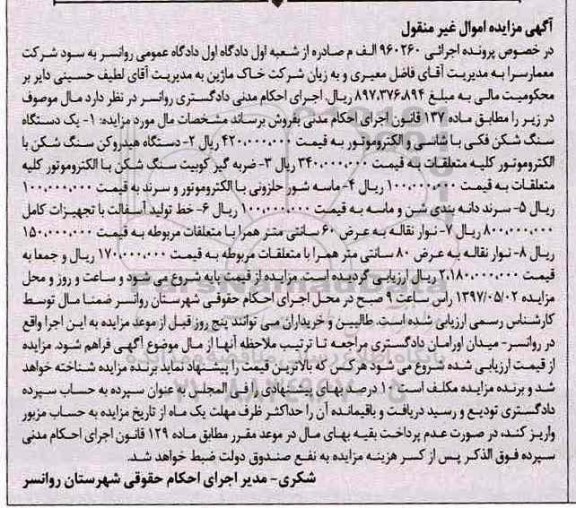 آگهی مزایده اموال غیر منقول
در خصوص پرونده اجرائی ۹۶۰۲۶۰ الف م صادره از شعبه اول دادگاه اول دادگاه عمومی روانسر به سود شرکت
معمارسرا به مدیریت آقای فاضل معیری و به زیان شرکت خاک ماژین به مدیریت آقای لطیف حسینی دایر بر
محکومیت مالی به مبلغ ۸۹۷،۳۷۶،۸۹۴ ریال، اجرای احکام مدنی دادگستری روانسر در نظر دارد مال موصوف
در زیر را مطابق ماده ۱۳۷ قانون اجرای احکام مدنی بفروش برساند مشخصات مال مورد مزایده: ۱- یک دستگاه
سنگ شکن فکی با شاسی و الکتروموتور به قیمت ۴۲۰،۰۰۰،۰۰۰ ریال ۲- دستگاه هیدروکن سنگ شکن با
الکتروموتور کلیه متعلقات به قیمت ۳۴۰،۰۰۰،۰۰۰ ریال ۳- ضربه گیر کوبیت سنگ شکن با الکتروموتور کلیه
متعلقات به قیمت ۱۰۰،۰۰۰،۰۰۰ ریال ۴- ماسه شور حلزونی با الکتروموتور و سرند به قیمت ۱۰۰،۰۰۰،۰۰۰
ریال ۵- سرند دانه بندی شن و ماسه به قیمت ۱۰۰،۰۰۰،۰۰۰ ریال ۶- خط تولید آسفالت با تجهیزات کامل
۸۰۰،۰۰۰،۰۰۰ ریال ۷- نوار نقاله به عرض ۶۰ سانتی متر همرا با متعلقات مربوطه به قیمت ۱۵۰،۰۰۰،۰۰۰
ریال ۸- نوار نقاله به عرض ۸۰ سانتی متر همرا با متعلقات مربوطه به قیمت ۱۷۰،۰۰۰،۰۰۰ ریال و جمعا به
قیمت ۲،۱۸۰،۰۰۰،۰۰۰ ریال ارزیابی گردیده است. مزایده از قیمت پایه شروع می شود و ساعت و روز و محل
مزایده ۱۳۹۷/۰۵/۰۲ راس ساعت ۹ صبح در محل اجرای احکام حقوقی شهرستان روانسر ضمنا مال توسط
کارشناس رسمی ارزیابی شده است. طالبین و خریداران می توانند پنج روز قبل از موعد مزایده به این اجرا واقع
در روانسر- میدان اورامان دادگستری مراجعه تا ترتیب ملاحظه آنها از مال موضوع آگهی فراهم شود. مزایده
از قیمت ارزیابی شده شروع می شود هر کس که بالاترین قیمت را پیشنهاد نماید برنده مزایده شناخته خواهد
شد و برنده مزایده مکلف است ۱۰ درصد بهای پیشنهادی را فی المجلس به عنوان سپرده به حساب سپرده
دادگستری تودیع و رسید دریافت و باقیمانده آن را حداکثر ظرف مهلت یک ماه از تاریخ مزایده به حساب مزبور
واریز کند، در صورت عدم پرداخت بقیه بهای مال در موعد مقرر مطابق ماده ۱۲۹ قانون اجرای احکام مدنی
سپرده فوق الذکر پس از کسر هزینه مزایده به نفع صندوق دولت ضبط خواهد شد.
شکری- مدیر اجرای احکام حقوقی شهرستان روانسر